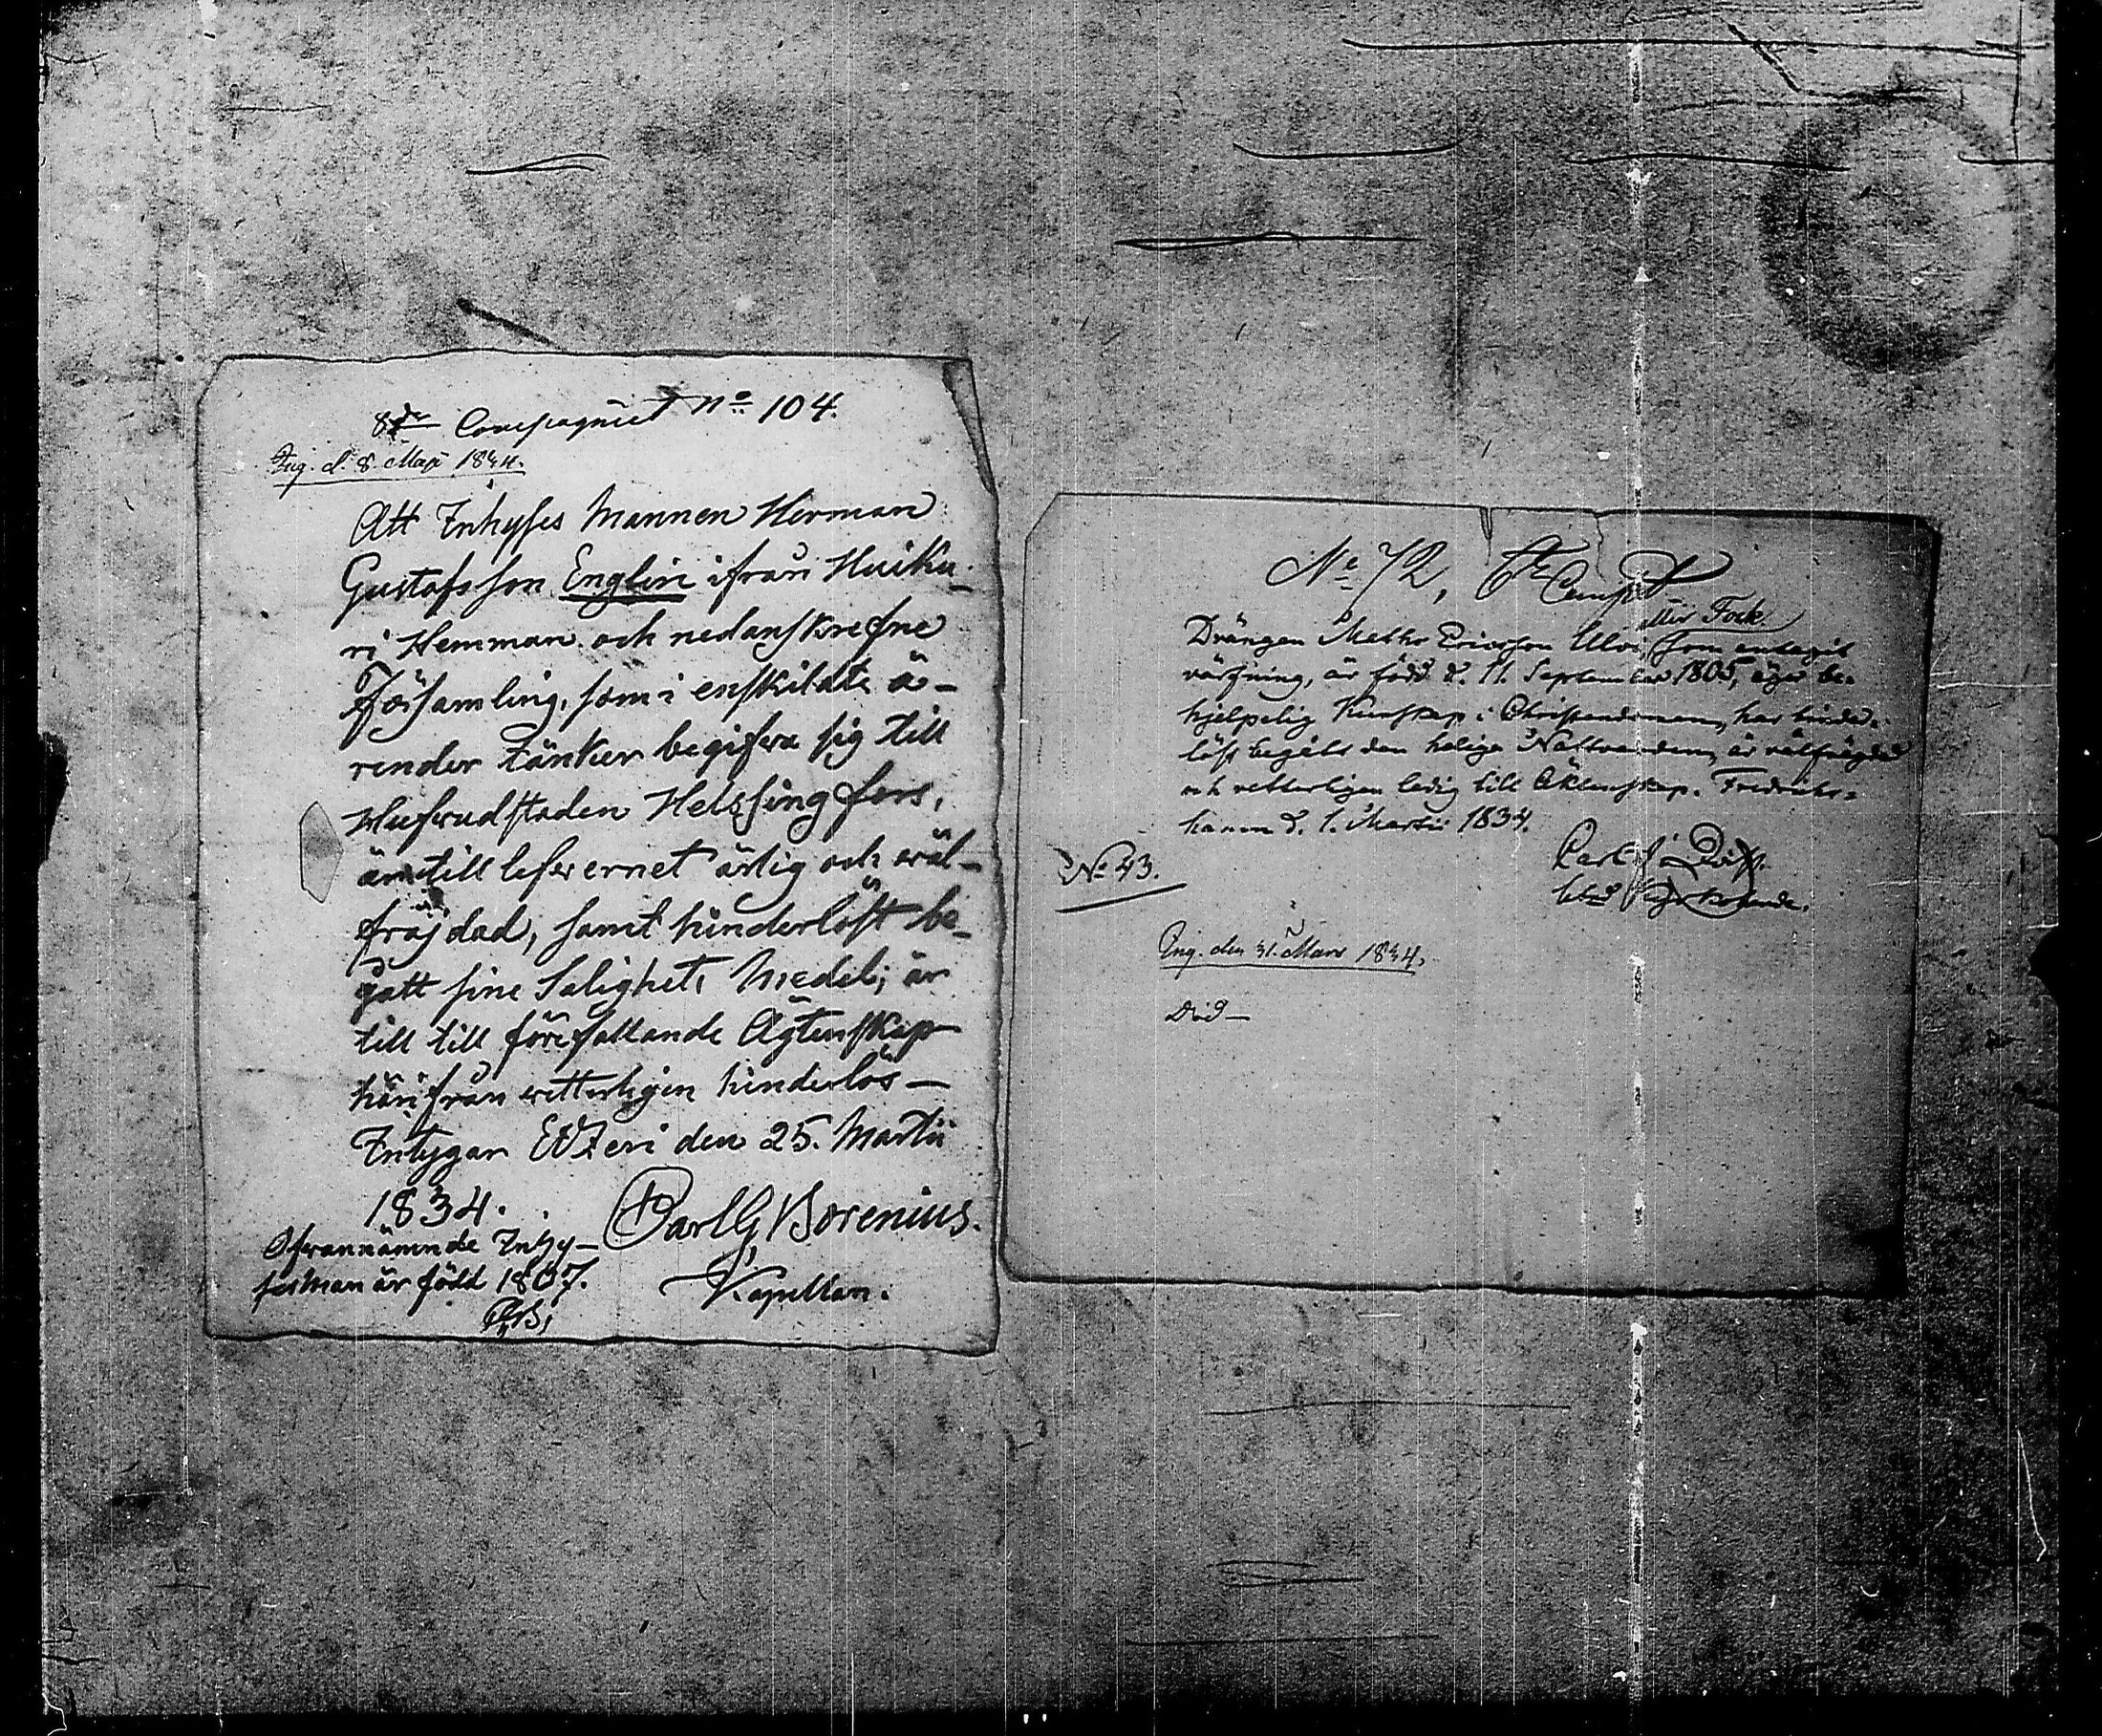 8de Compagniet No 104.
Ing. d. 8. Maji 1834.
Att Inhyses Mannen Herman
Gustafsson Englin ifrån Huiku-
ri Hemman och nedanskrefne
Församling, som i enskilate ä-
render tänker begifwa sig till
Hufwudstaden Helssingfors,
är till lefwernet ärlig och wäl-
fräjdad, samt hinderlöst be-
gått sine Salighets Medel; är
till till förefallande Ägtenskap
härifrån wetterligen hinderlös—
Intygar den 25. Martii
1834.
Carl G Borenius.
Kapellan.
Ofwannämnde Inhy-
sesman är född 1807.
CGB,
No 72, Compt
Fock
Drängen Matts Ericsson Ulvi, som antagit
värfning, är född d. 11. September 1805, äger be-
hjelpelig Kunskap i Christendomen, har hinder-
löst begått den heliga Nattvarden, är välfrägdad
och vetterligen ledig till Äktenskap. Fredrichs-
hamn d. 1. Martii 1834.
Carl
No 43.
Ing. den 31. Mars 1834.
Död—